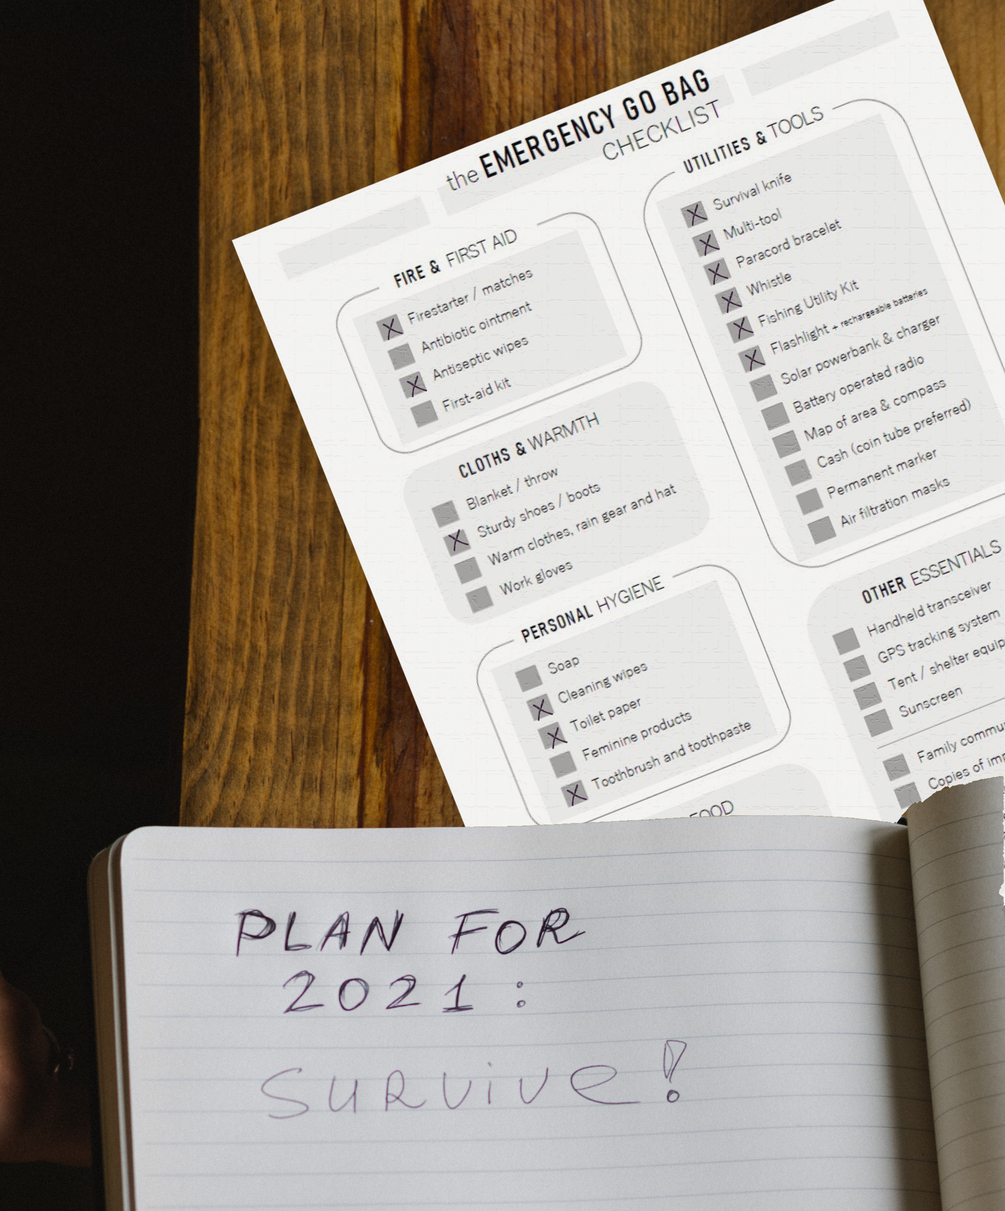 the EMERGENCY GO BAG
CHECKLIST
FIRE & FIRST AID
Firestarter / matches
Antibiotic ointment
Antiseptic wipes
First-aid kit
CLOTHS & WARMTH
Blanket / throw
Sturdy shoes / boots
Warm clothes, rain gear and hat
Work gloves
PERSONAL HYGIENE
Soap
Cleaning wipes
Toilet paper
Feminine products
Toothbrush and toothpaste
FOOD
UTILITIES & TOOLS
Survival knife
Multi-tool
Paracord bracelet
Whistle
Fishing Utility Kit
Flashlight + rechargeable batteries
Solar powerbank & charger
Battery operated radio
Map of area & compass
Cash (coin tube preferred)
Permanent marker
Air filtration masks
OTHER ESSENTIALS
Handheld transceiver
GPS tracking system
Tent / shelter
Sunscreen
Family
Copies of
PLAN FOR
2021 :
Survive!